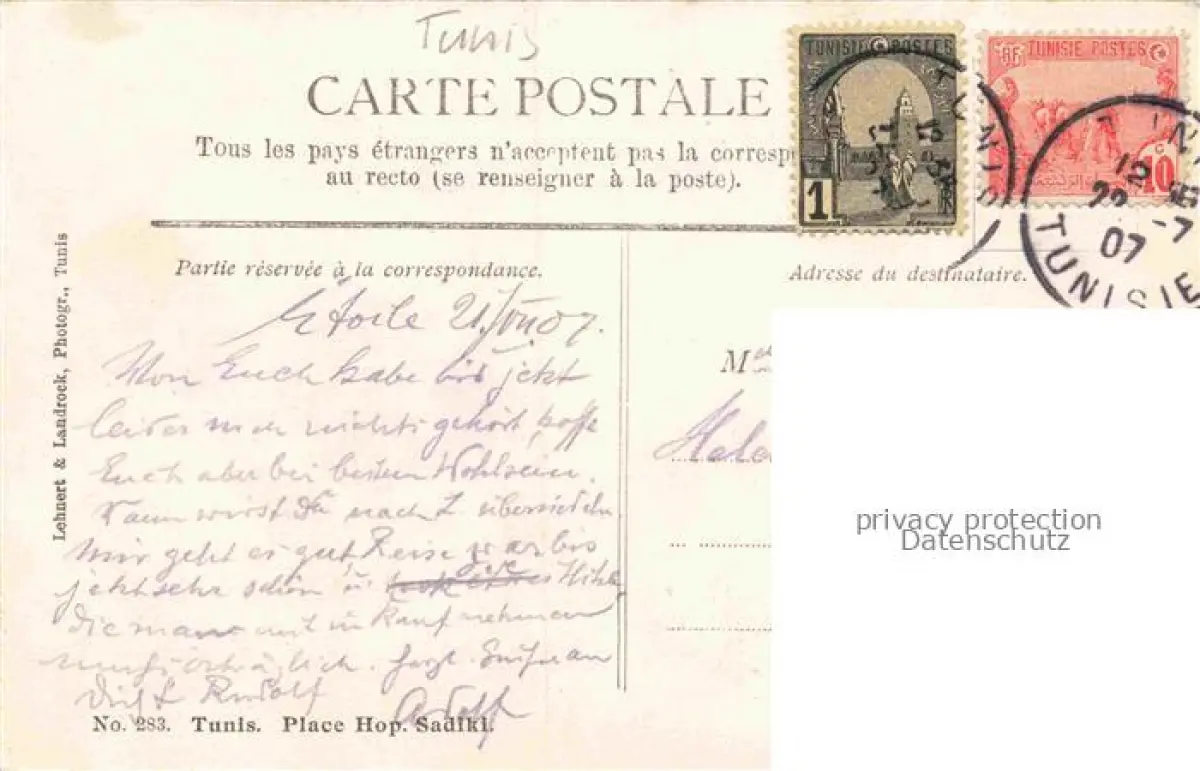 Tunis
CARTE POSTALE
Tous les pays étrangers n'acceptent pas la corresp
au recto (se renseigner à la poste).
TUNISIE POSTES
1
TUNISIE POSTES
10
TUNIS
TUNISIE
07
Partie réservée à la correspondance.
Adresse du destinataire.
Lehnert & Landrock, Photogr., Tunis
Etoile 21./VII.07.
Von Euch habe bis jetzt
leider noch nichts gehört, hoffe
Euch aber bei bestem Wohlsein.
Wann wirst Du nach Z. übersiedeln.
Mir geht es gut, Reise war bis
jetzt sehr schön u. die Hitze
die man mit in Kauf nehmen
muss, erträglich. Herzl. Grüsse an
Dich & Rudolf
Adolf
M
Hele
No. 283. Tunis. Place Hop. Sadiki.
privacy protection
Datenschutz